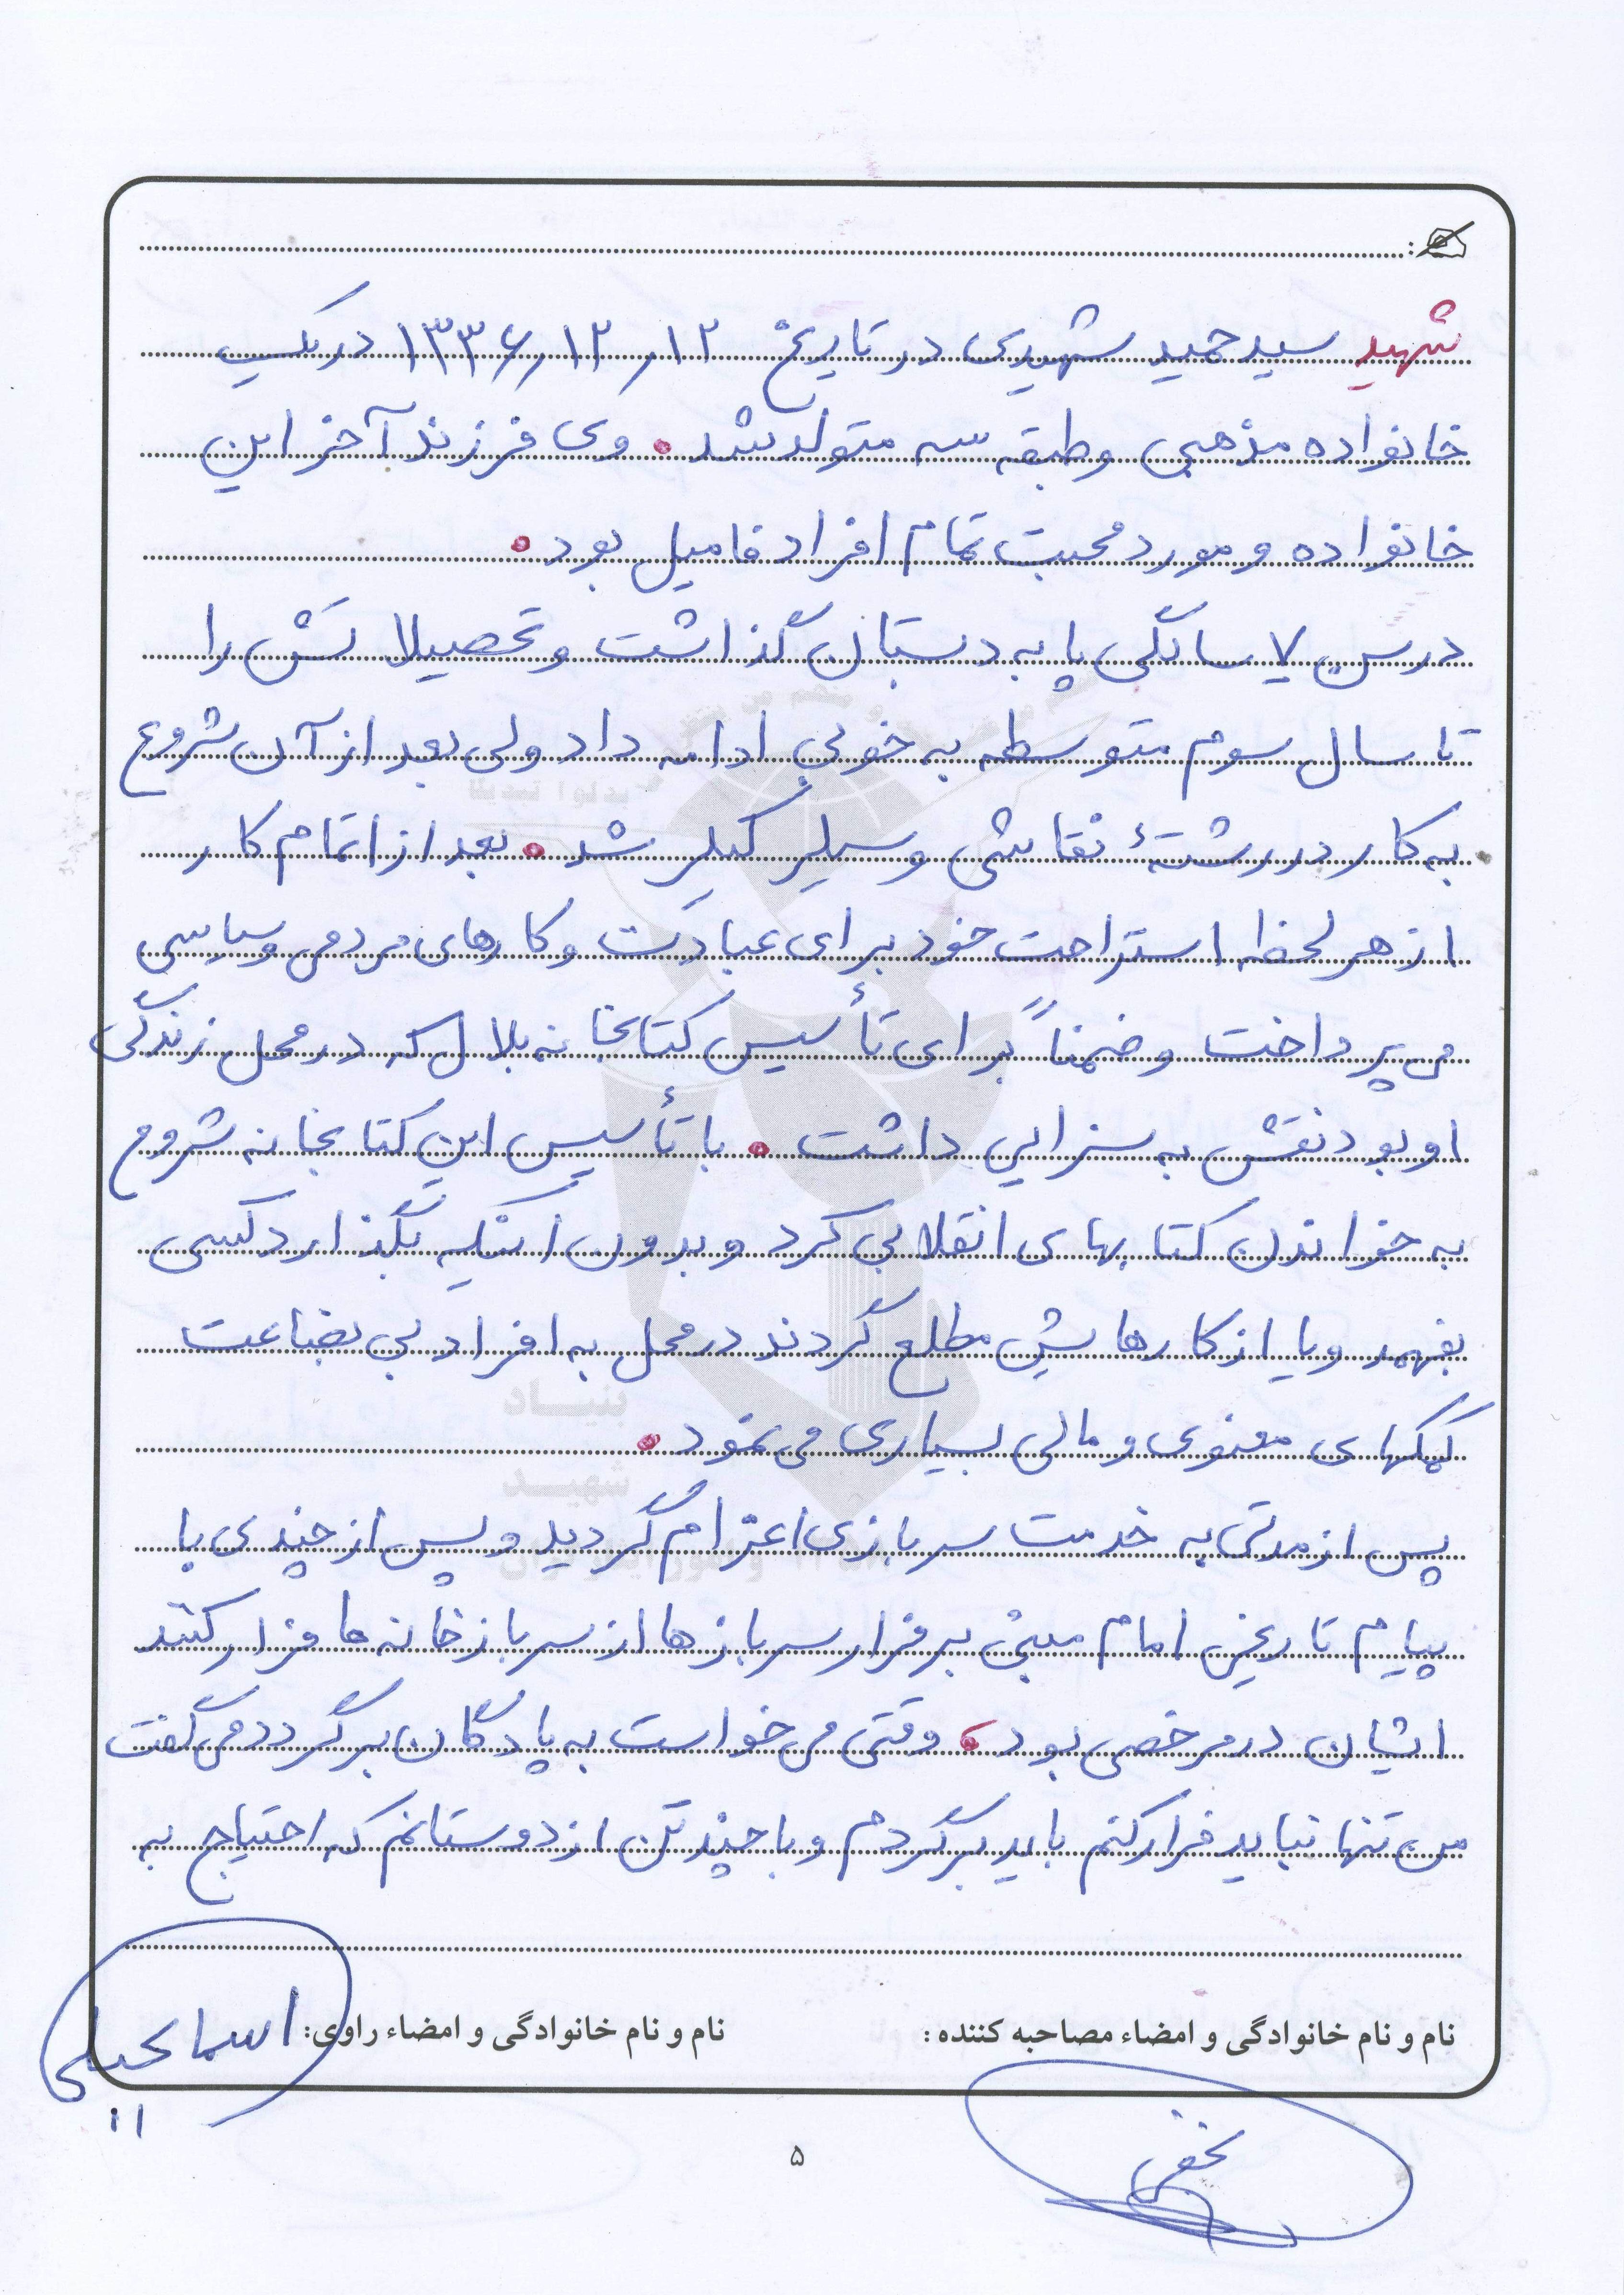 شهید سید حمید شهیدی در تاریخ ۱۳۳۶/۱۲/۱۲ در یک
خانواده مذهبی و طبقه سه متولد شد. وی فرزند آخر این
خانواده و مورد محبت تمام افراد فامیل بود.
در سن ۷ سالگی پا به دبستان گذاشت و تحصیلاتش را
تا سال سوم متوسطه به خوبی ادامه داد ولی بعد از آن شروع
به کار در رشتهٔ نقاشی و سیلر کیلر شد. بعد از اتمام کار
از هر لحظه استراحت خود برای عبادت و کارهای مردمی و سیاسی
می پرداخت و ضمناً برای تأسیس کتابخانه بلال که در محل زندگی
او بود نقش به سزایی داشت. با تأسیس این کتابخانه شروع
به خواندن کتابهای انقلابی کرد و بدون اینکه بگذارد کسی
بفهمد و یا از کارهایش مطلع گردند در محل به افراد بی بضاعت
کمکهای معنوی و مالی بسیاری می نمود.
پس از مدتی به خدمت سربازی اعزام گردید و پس از چندی با
پیام تاریخی امام مبنی بر فرار سربازها از سربازخانه ها فرار کنند
ایشان در مرخصی بود. وقتی می خواست به پادگان برگردد می گفت
من تنها نباید فرار کنم باید برگردم و با چند تن از دوستانم که احتیاج به
نام و نام خانوادگی و امضاء مصاحبه کننده: نام و نام خانوادگی و امضاء راوی: اسماعیلی
۵
بنیاد
شهید